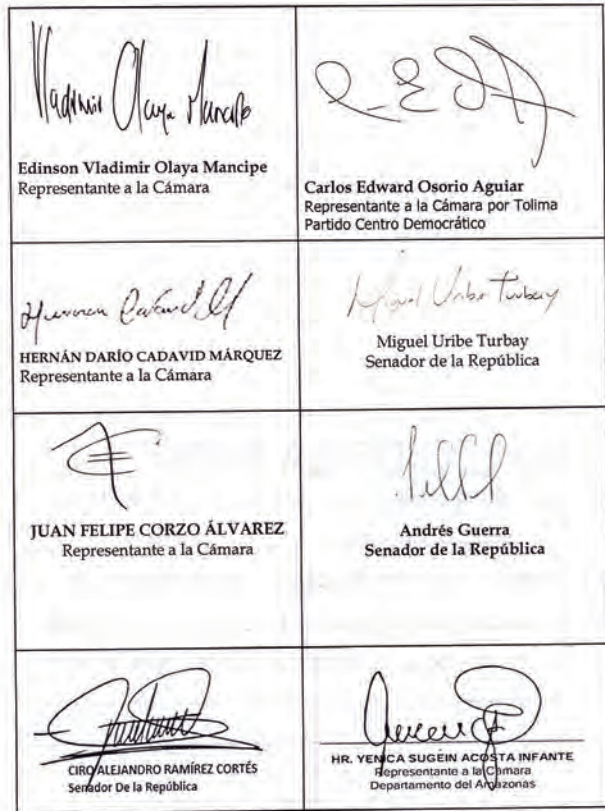 Vladimir Olaya Mancipe
Edinson Vladimir Olaya Mancipe
Representante a la Cámara
Carlos Edward Osorio Aguiar
Representante a la Cámara por Tolima
Partido Centro Democrático
HERNÁN DARÍO CADAVID MÁRQUEZ
Representante a la Cámara
Miguel Uribe Turbay
Miguel Uribe Turbay
Senador de la República
JUAN FELIPE CORZO ÁLVAREZ
Representante a la Cámara
Andrés Guerra
Senador de la República
CIRO ALEJANDRO RAMÍREZ CORTÉS
Senador De la República
HR. YENICA SUGEIN ACOSTA INFANTE
Representante a la Cámara
Departamento del Amazonas